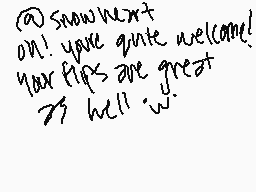 @ snowheart
oh! you're quite welcome!
your flips are great
as well ·w·